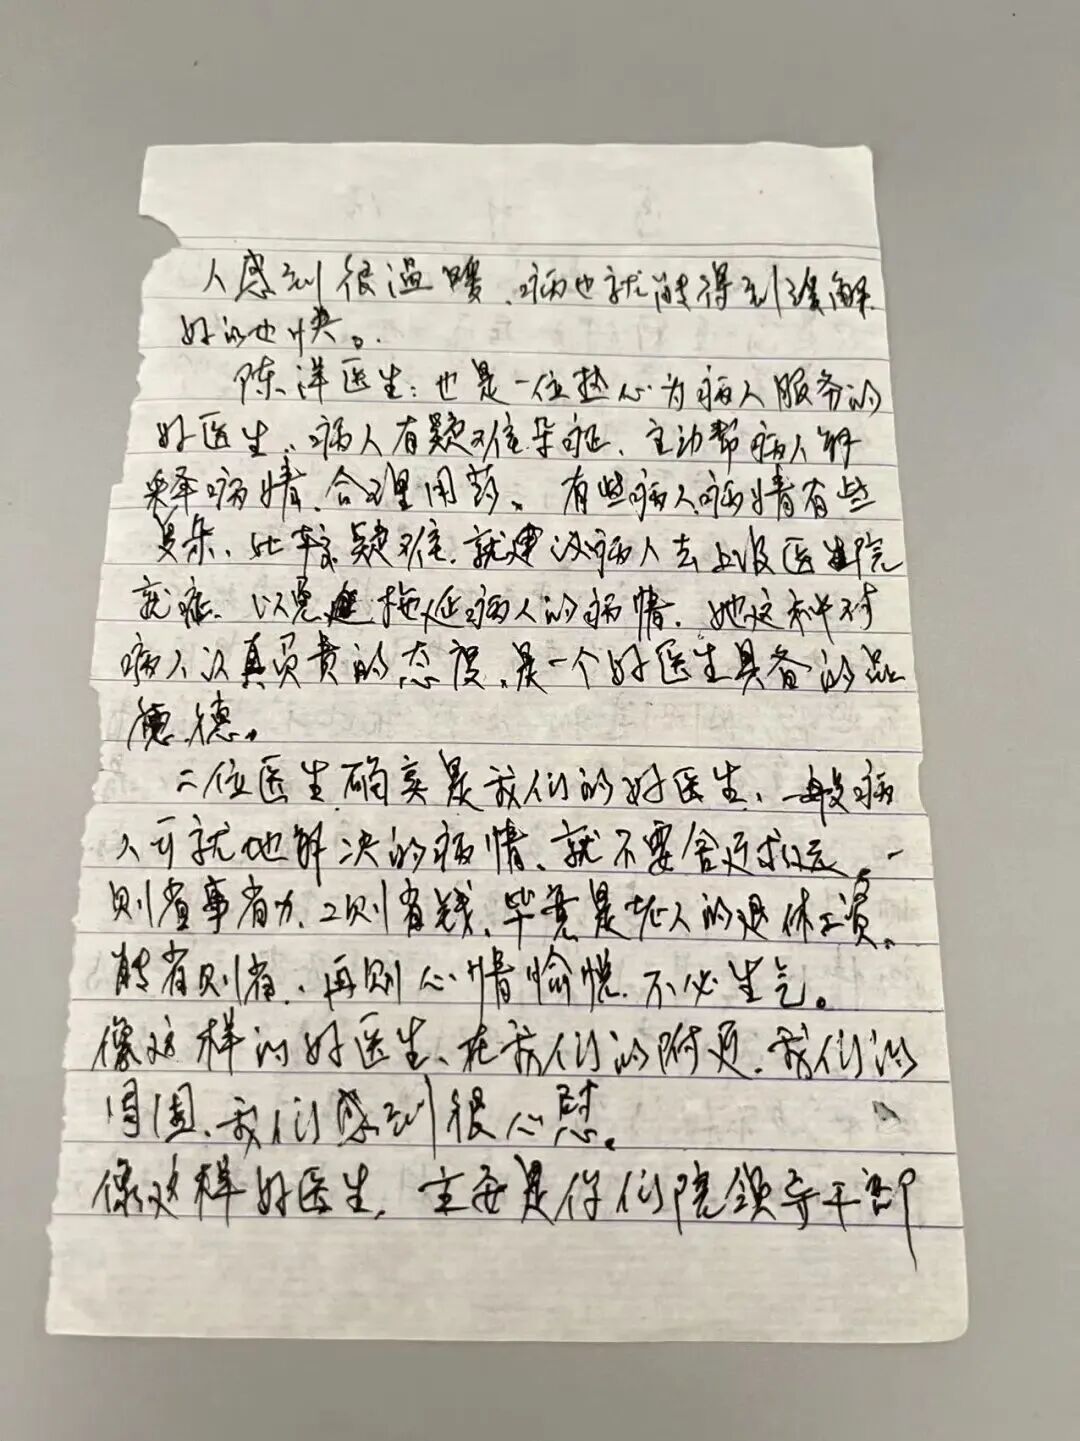 人感到很温暖、病也就能得到缓解
好的也快。
陈洋医生：也是一位热心为病人服务的
好医生、病人有疑难杂症、主动帮病人解
释病情、合理用药。有些病人病情有些
复杂、比较疑难、就建议病人去上级医院
就症、以免拖延病人的病情、她这种对
病人认真负责的态度、是一个好医生具备的品
德。
二位医生确实是我们的好医生、一般病
人可就地解决的病情、就不要舍近求远、一
则省事省力、二则省钱、毕竟是老人的退休工资、
能省则省、再则心情愉悦、不必生气。
像这样的好医生、在我们的附近、我们的
周围、我们感到很心慰。
像这样好医生、主要是你们院领导干部